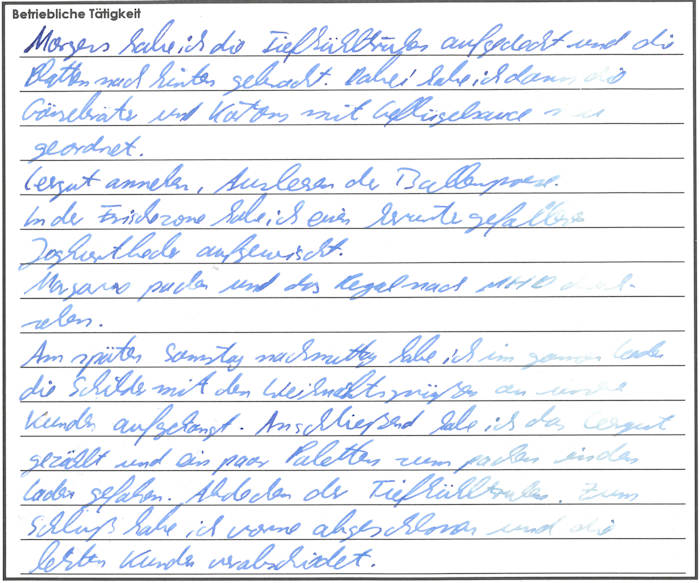 Betriebliche Tätigkeit
Morgens habe ich die Tiefkühltruhen aufgedeckt und die
Platten nach hinten gebracht. Dabei habe ich dann die
Gänsebräter und Kartons mit Geflügelsauce
geordnet.
Leergut annehmen, Ausleeren der Ballenpresse.
In der Frischezone habe ich einen heruntergefallenen
Joghurtbecher aufgewischt.
packen und das Regal nach MHD durch-
sehen.
Am späten Samstag nachmittag habe ich im ganzen Laden
die Schilder mit den Weihnachtsgrüßen an unsere
Kunden aufgehängt. Anschließend habe ich das Leergut
gezählt und ein paar Paletten zum packen in den
Laden gefahren. Abdecken der Tiefkühltruhen. Zum
Schluß habe ich vorne abgeschlossen und die
letzten Kunden verabschiedet.